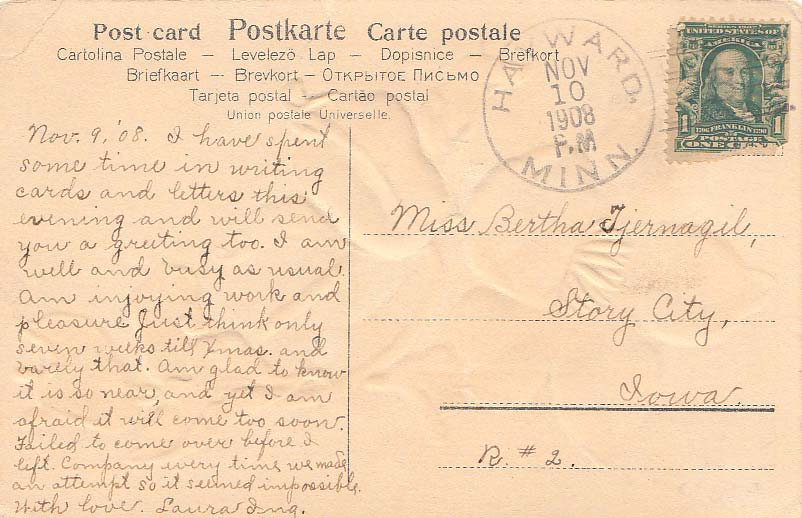 Post card Postkarte Carte postale
Cartolina Postale — Levelező Lap — Dopisnice — Brefkort
Briefkaart — Brevkort — Открытое Письмо
Tarjeta postal — Cartão postal
Union postale Universelle.
HAYWARD,
NOV
10
1908
P.M
MINN.
SERIES 1902
UNITED STATES OF
AMERICA
1
1706 FRANKLIN 1790
POSTAGE
ONE
Nov. 9, '08. I have spent
some time in writing
cards and letters this
evening and will send
you a greeting too. I am
well and busy as usual.
Am injoying work and
pleasure. Just think only
seven weeks till Xmas. and
barely that. Am glad to know
it is so near, and yet I am
afraid it will come too soon.
Failed to come over before I
left. Company every time we made
an attempt so it seemed impossible.
With love. Laura Ing.
Miss Bertha Tjernagil,
Story City,
Iowa.
R. # 2.